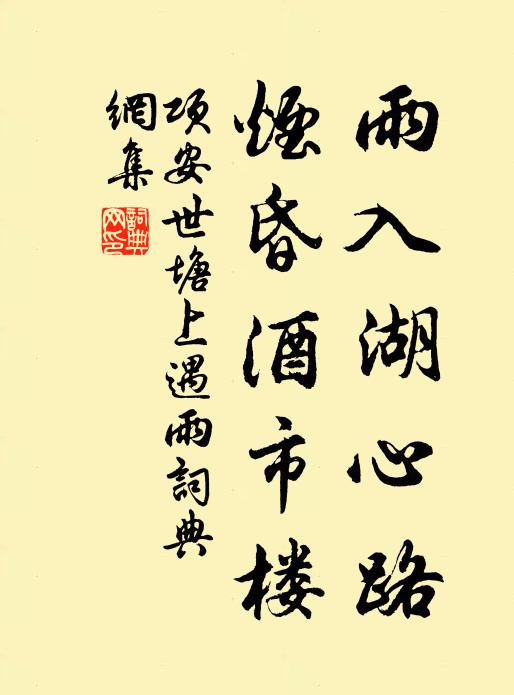 雨入湖心路
煙昏酒市楼
项安世塘上遇雨詞典
網集
詞典
网印